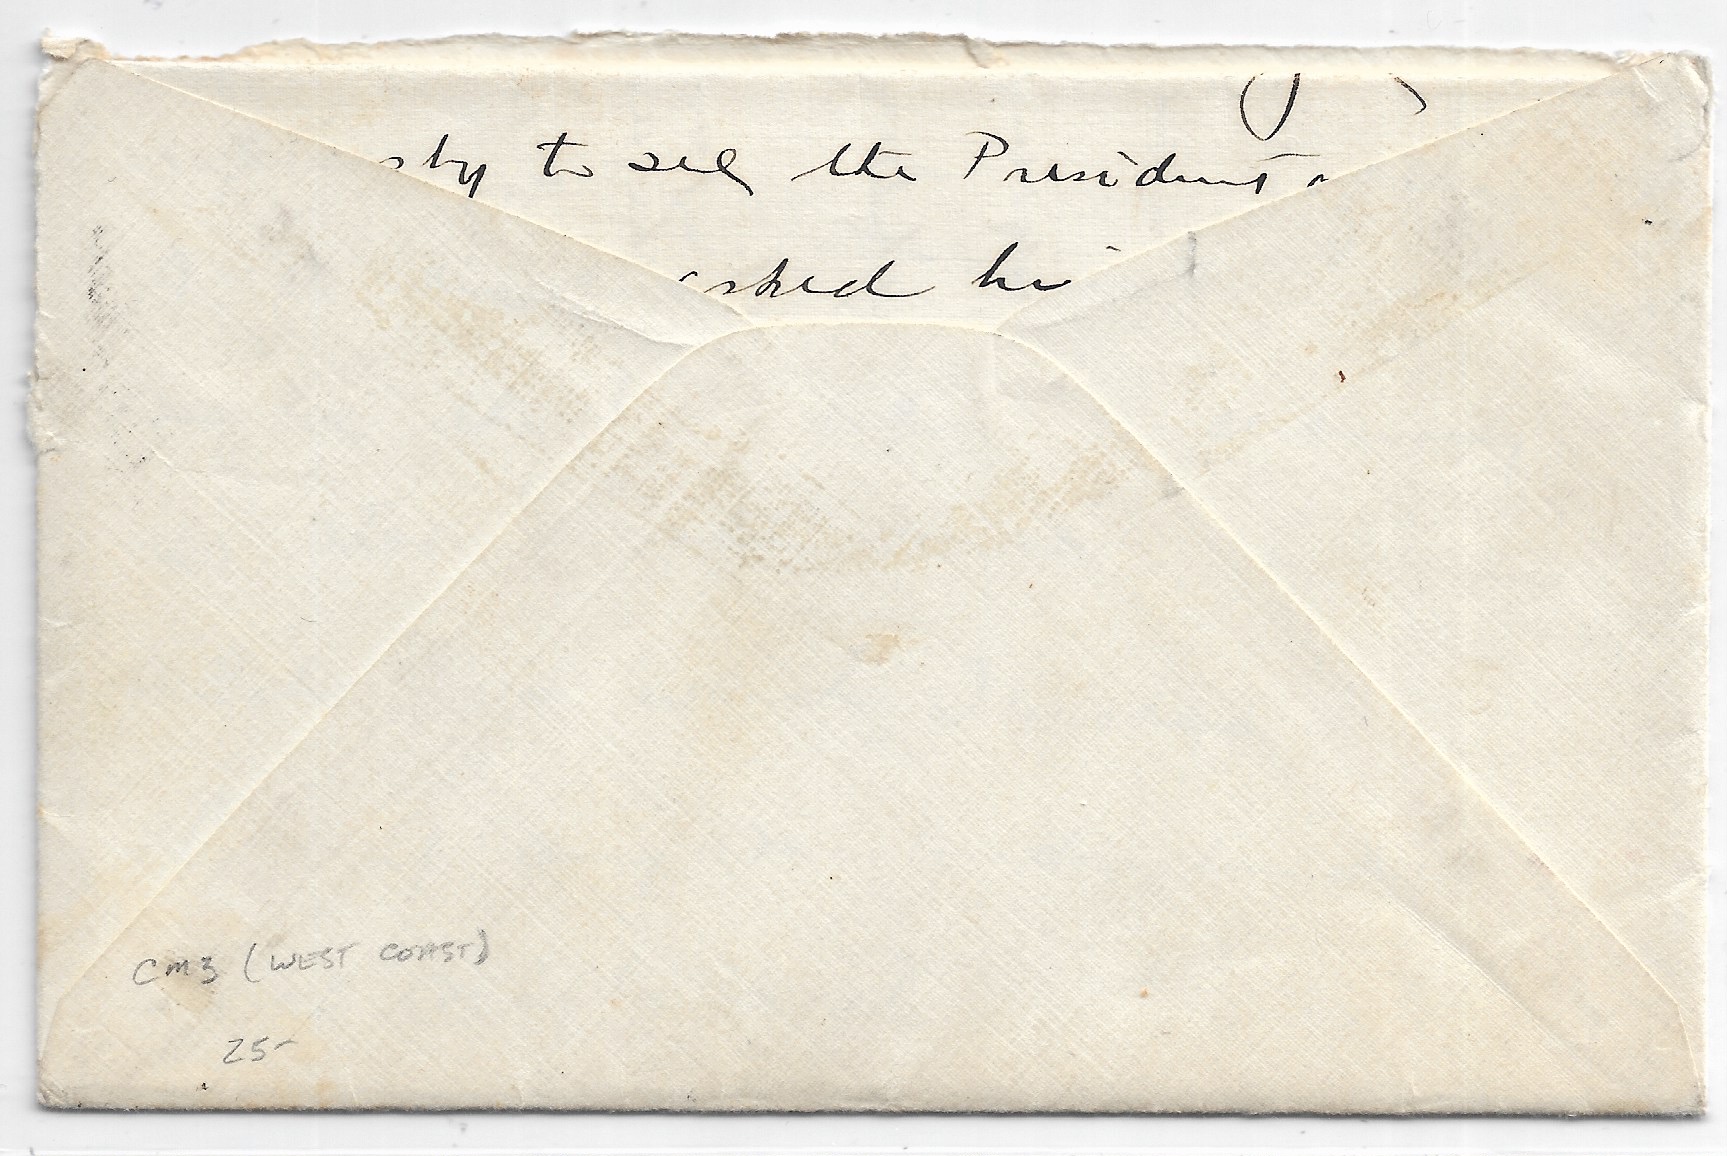 to see the President
asked
CM3 (WEST COAST)
25-